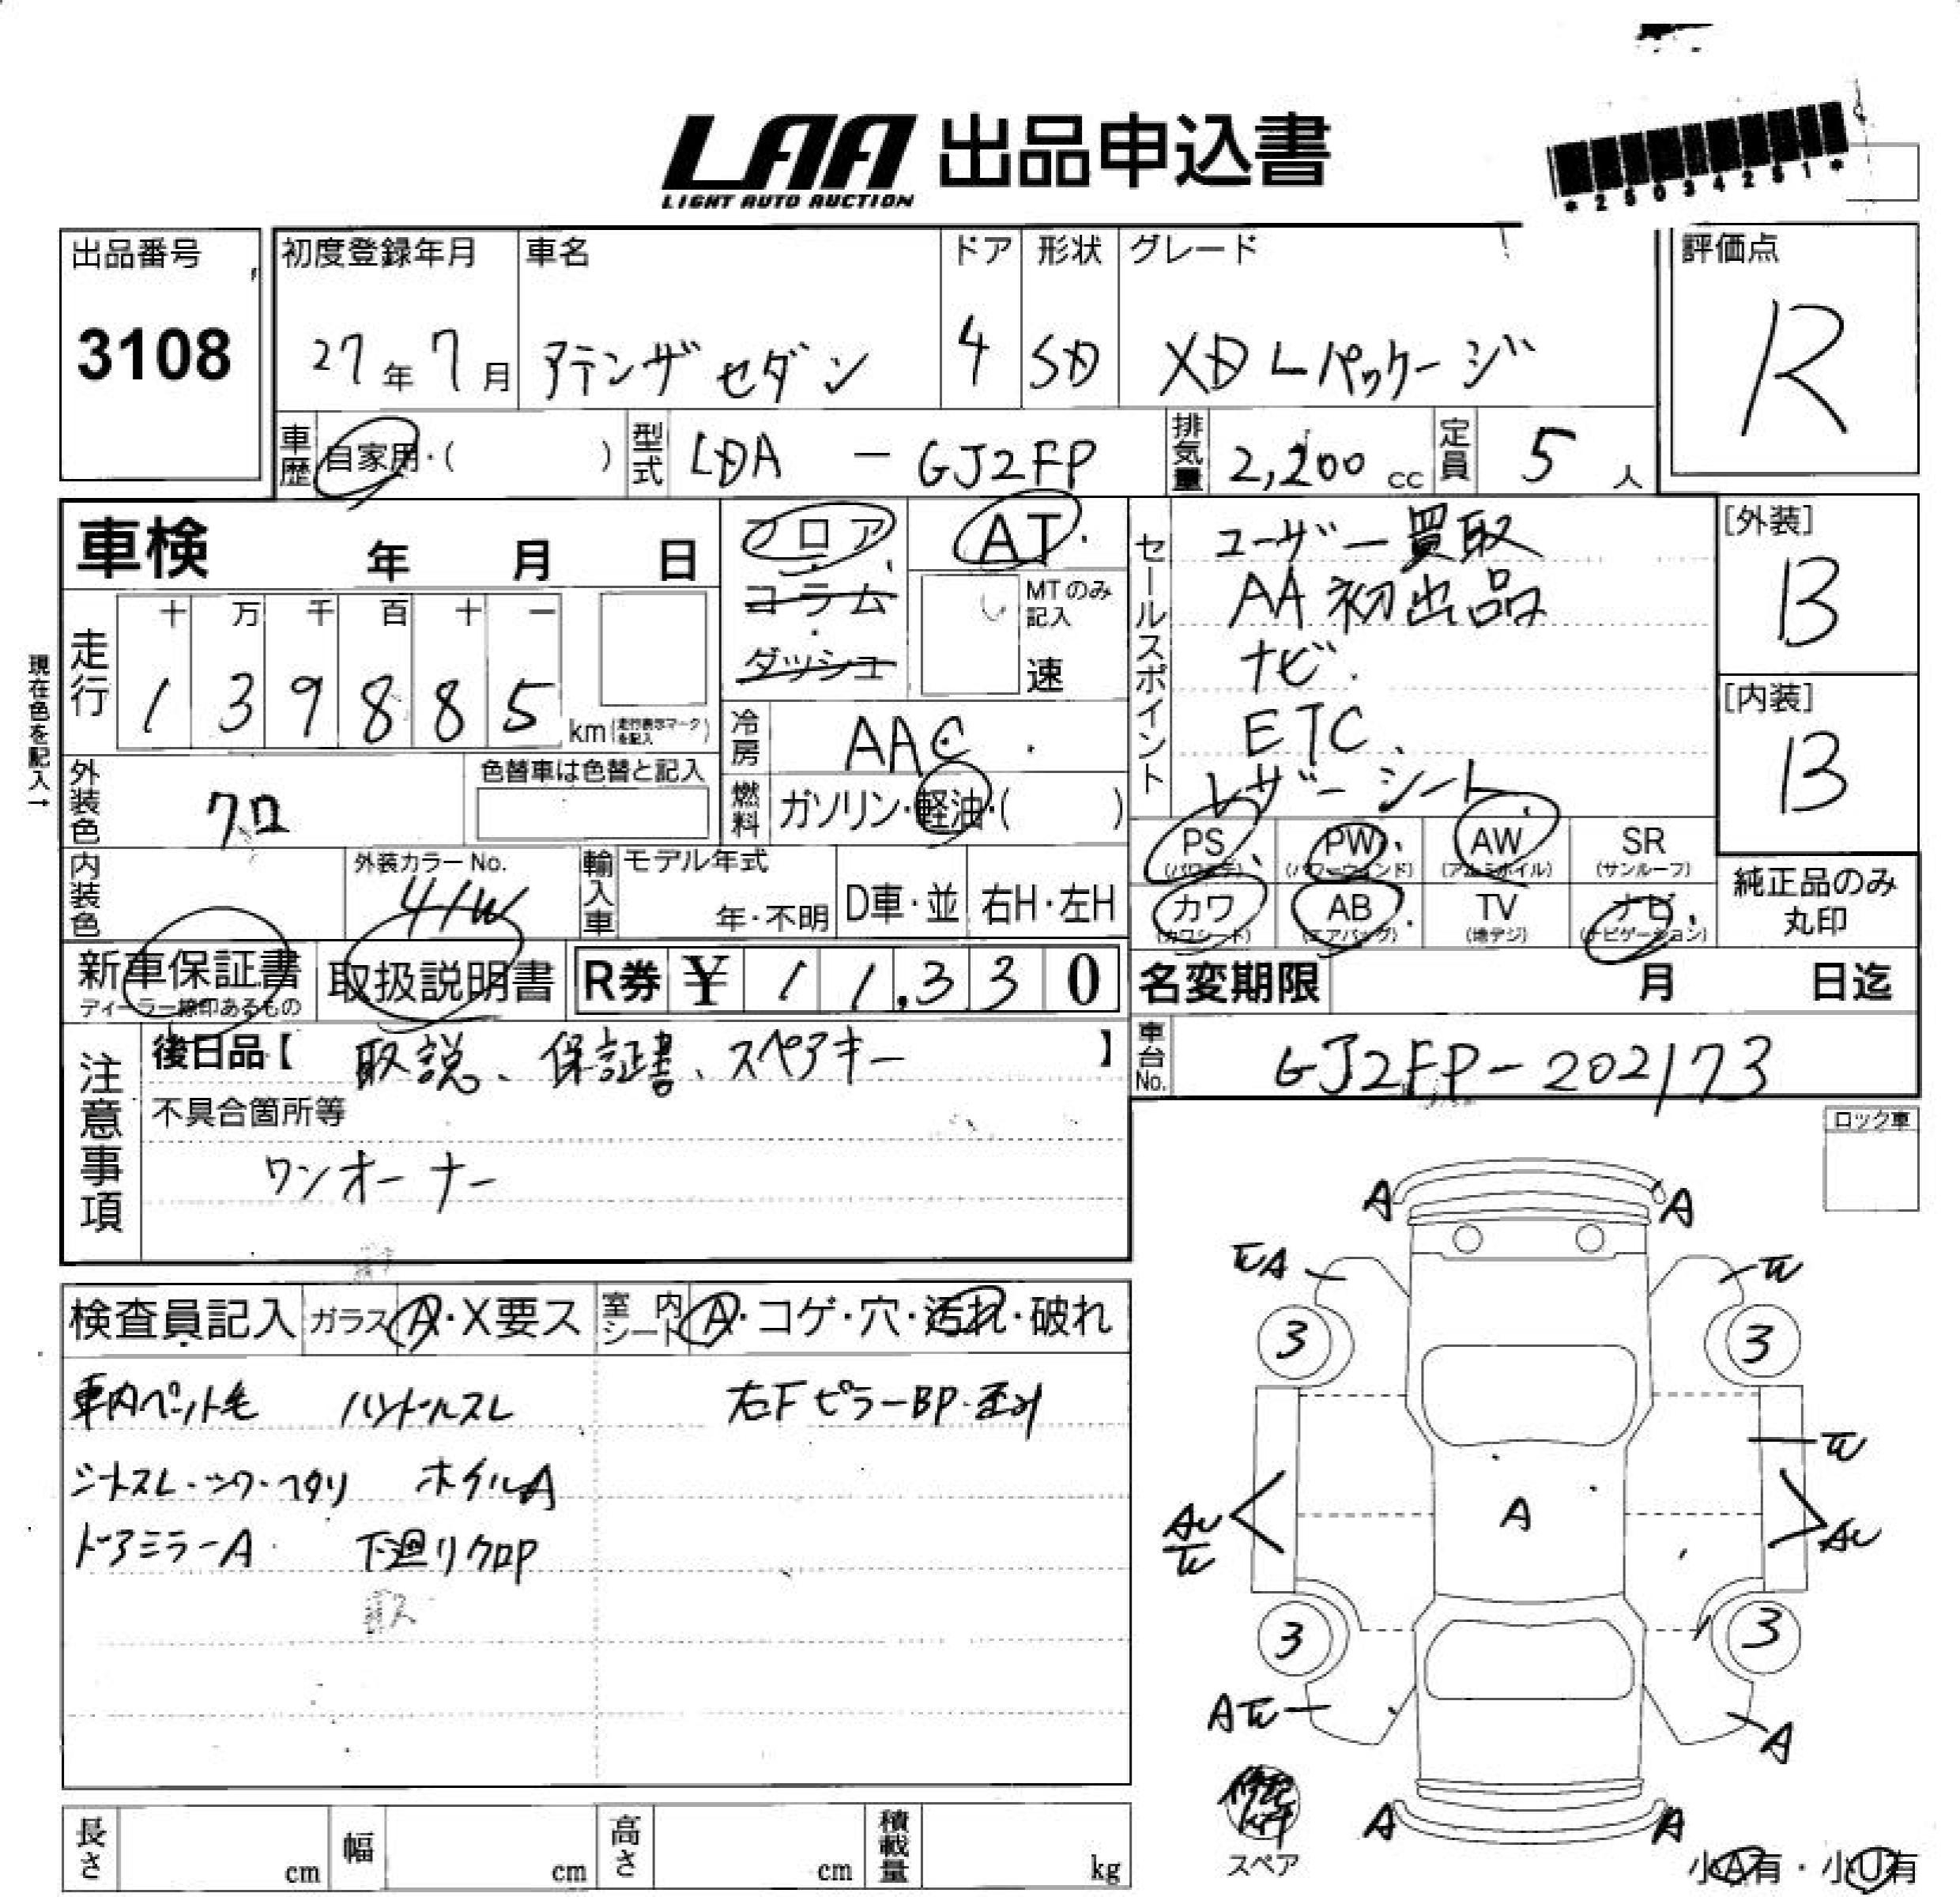 LAA 出品申込書
LIGHT AUTO AUCTION
*25034251*
出品番号 3108
初度登録年月 27年7月
車名 アテンザセダン
ドア 4
形状 SD
グレード XD Lパッケージ
評価点 R
車歴 自家用・( )
型式 LDA - GJ2FP
排気量 2,200 cc
定員 5 人
車検 年 月 日
フロア・コラム・ダッシュ
AT
MTのみ記入 速
現在色を記入→
走行 十 万 千 百 十 一
1 3 9 8 8 5 km (走行表示マークを記入)
冷房 AAC
燃料 ガソリン・軽油・( )
外装色 クロ
色替車は色替と記入
内装色
外装カラーNo. 41W
輸入車 モデル年式 年・不明 D車・並 右H・左H
セールスポイント
ユーザー買取
AA初出品
ナビ
ETC
レザーシート
[外装] B
[内装] B
PS (パワステ) PW (パワーウィンド) AW (アルミホイル) SR (サンルーフ)
カワ (カワシート) AB (エアバッグ) TV (地デジ) ナビ (ナビゲーション)
純正品のみ丸印
新車保証書 ディーラー捺印あるもの
取扱説明書
R券 ¥ 11,330
名変期限 月 日迄
車台No. GJ2FP-202173
注意事項
後日品【 取説、保証書、スペアキー 】
不具合箇所等
ワンオーナー
ロック車
検査員記入 ガラス A・X要ス 室内シート A・コゲ・穴・汚れ・破れ
車内ペット毛 ハンドルスレ 右FピラーBP・歪み
シートスレ・シワ・ヘタリ ホイルA
ドアミラーA 下廻りクロP
A A
WA W
3 3
W
AU W A AU
3 3
AW A
A A
スペア
小A有・小U有
長さ cm 幅 cm 高さ cm 積載量 kg